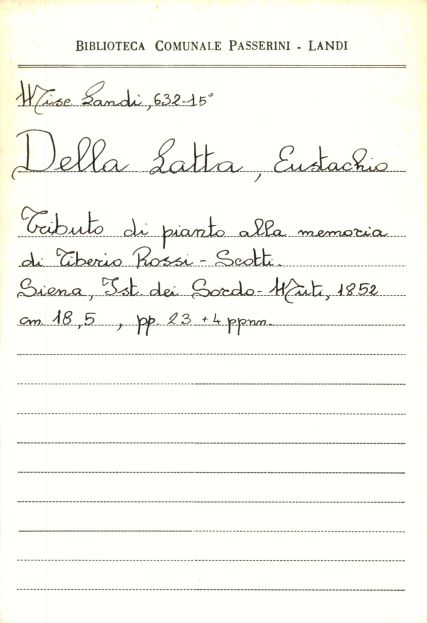 BIBLIOTECA COMUNALE PASSERINI - LANDI
Misc Landi, 632-15°
Della Latta, Eustachio
Tributo di pianto alla memoria
di Tiberio Rossi - Scotti.
Siena, Ist. dei Sordo-Muti, 1852
cm 18,5 , pp. 23 + 4 ppnn.